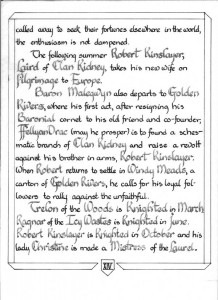 called away to seek their fortunes elsewhere in the world,
the enthusiasm is not dampened.
The following summer Robert Kinslayer,
Laird of Clan Kidney, takes his new wife on
Pilgrimage to Europe.
Baron Malegwyn also departs to Golden
Rivers, where his first act, after resigning his
Baronial cornet to his old friend and co-founder,
(may he prosper) is to found a schis-
matic branch of Clan Kidney and raise a revolt
against his brother in arms, Robert Kinslayer.
When Robert returns to settle in Windy Meads, a
canton of Golden Rivers, he calls for his loyal fol-
lowers to rally against the unfaithful.
Trelon of the Woods is Knighted in March
Ragnar of the Icy Wastes is Knighted in June.
Robert Kinslayer is Knighted in October and his
lady Christine is made a Mistress of the Laurel.
XIV.